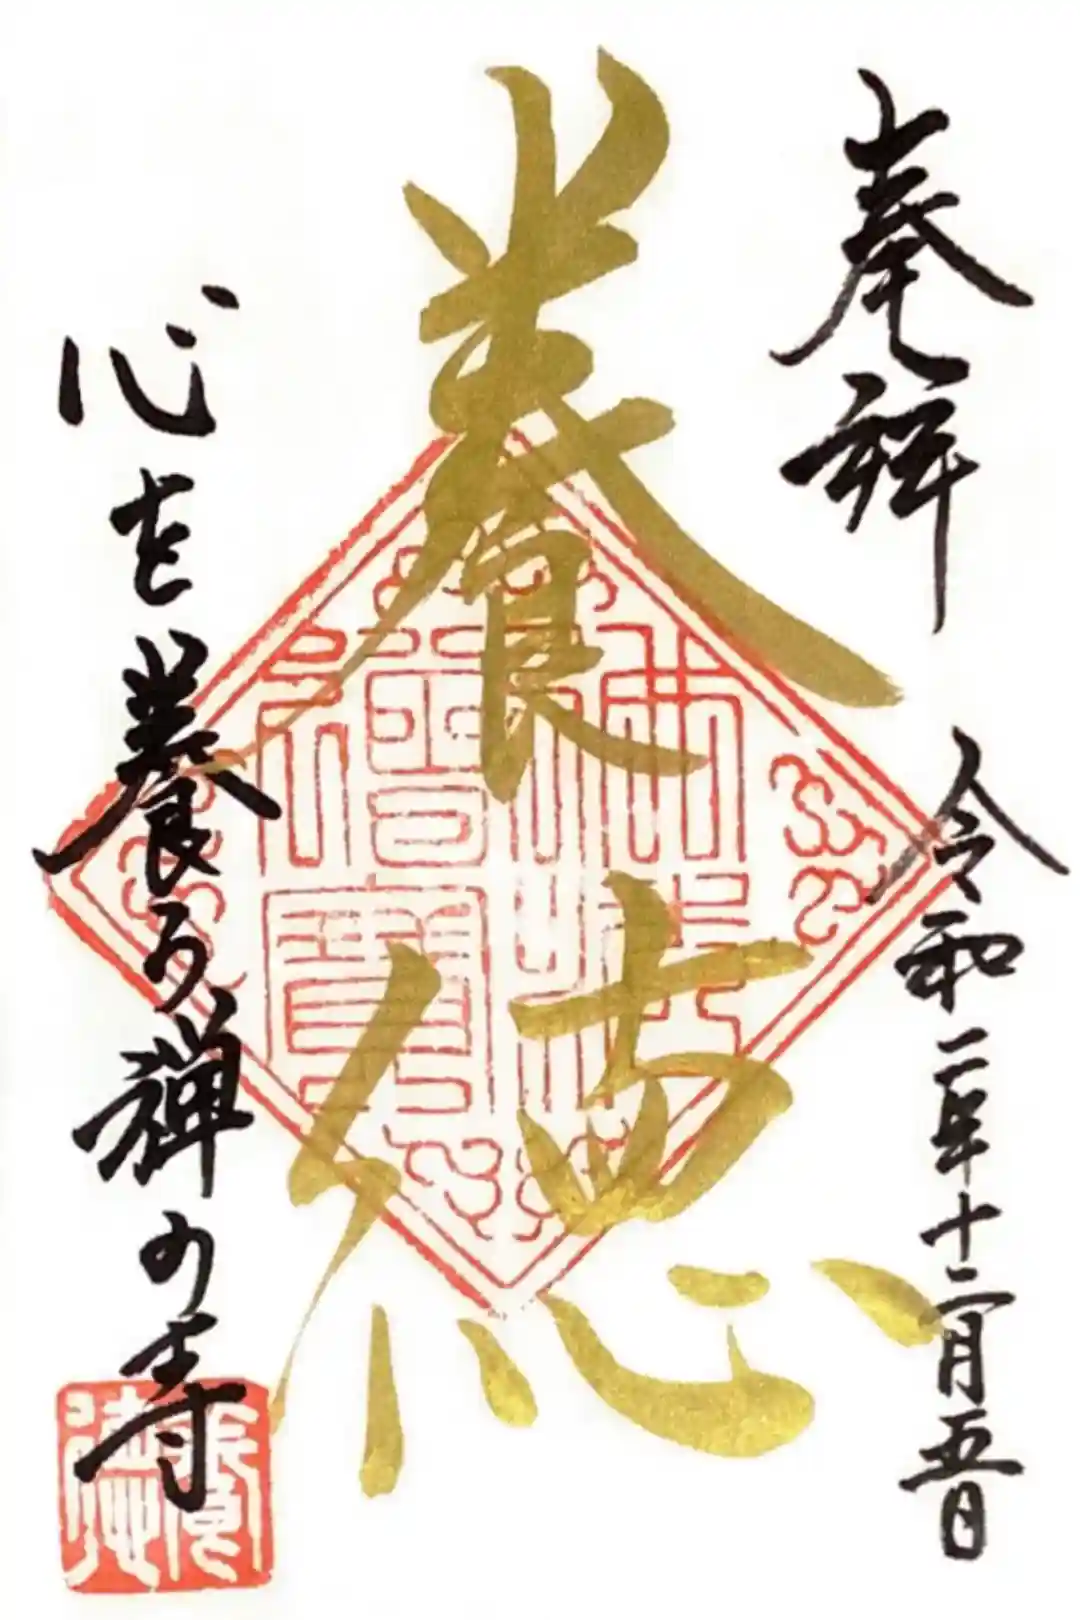 奉拝
令和二年十二月五日
養徳
佛法僧寶
心を養う禅の寺
養徳